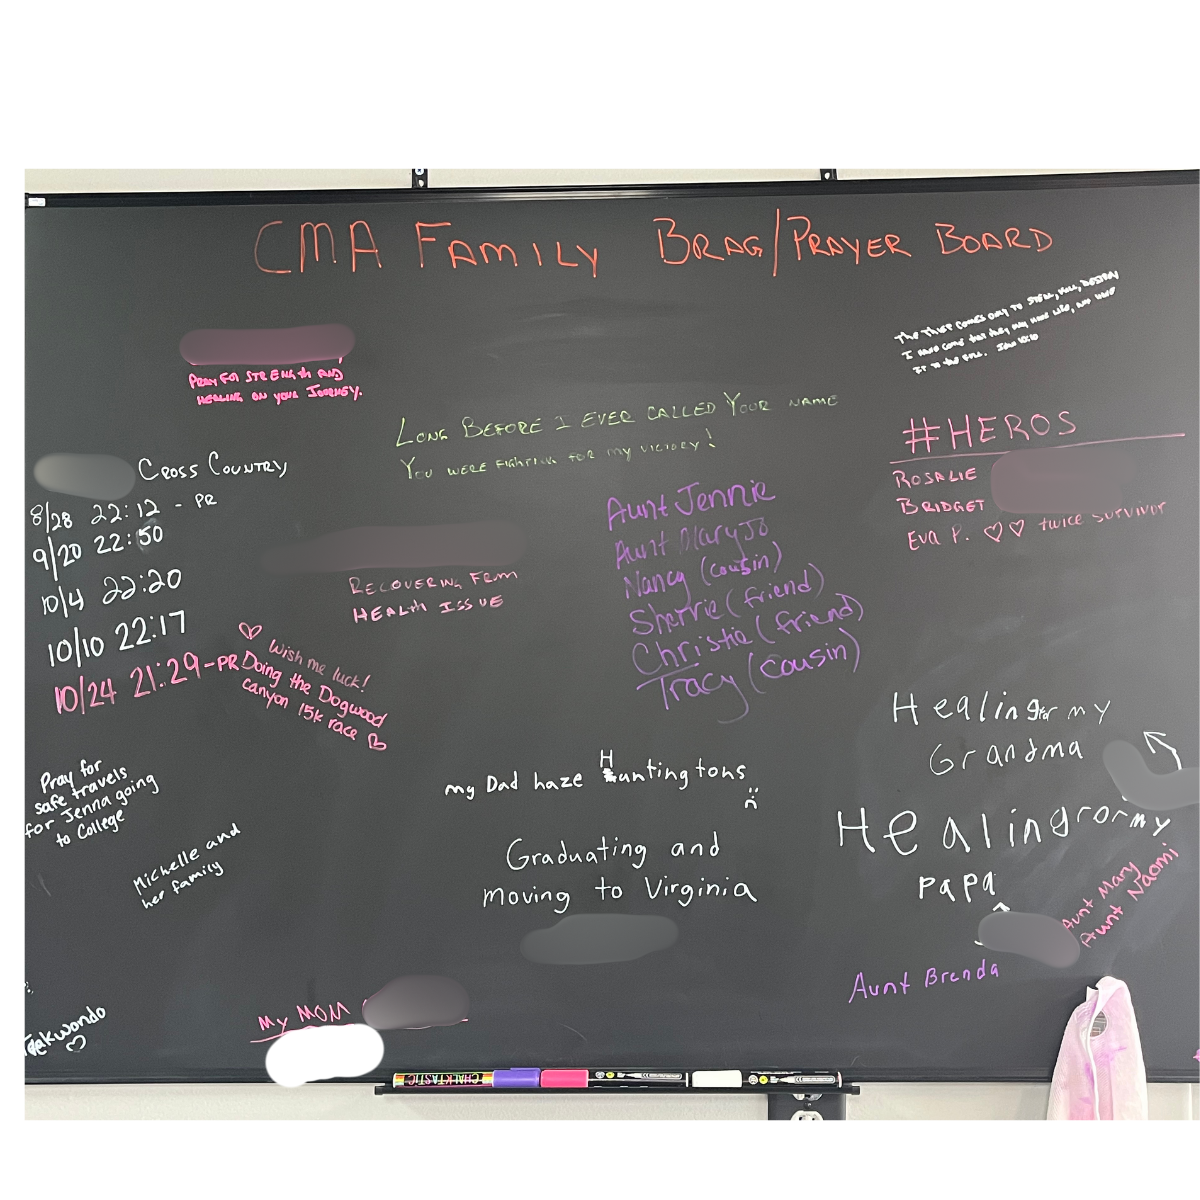 CMA FAMILY BRAG/PRAYER BOARD
THE THIEF COMES ONLY TO STEAL, KILL, DESTROY
I HAVE COME THAT THEY MAY HAVE LIFE, AND HAVE
IT TO THE FULL. JOHN 10:10
PRAY FOR STRENGTH AND
HEALING ON YOUR JOURNEY.
LONG BEFORE I EVER CALLED YOUR NAME
YOU WERE FIGHTING FOR MY VICTORY!
#HEROS
ROSALIE
BRIDGET
EVA P. ♡♡ twice survivor
CROSS COUNTRY
8/28 22:12 - PR
9/20 22:50
10/4 22:20
10/10 22:17
10/24 21:29-PR
♡ Wish me luck!
Doing the Dogwood
canyon 15k race ♡
RECOVERING FROM
HEALTH ISSUE
Aunt Jennie
Aunt MaryJo
Nancy (cousin)
Sherrie (friend)
Christie (friend)
Tracy (cousin)
Healing for my
Grandma
my Dad haze Huntingtons
Pray for
safe travels
for Jenna going
to College
Michelle and
her family
Graduating and
moving to Virginia
Healing for my
papa
Aunt Mary
Aunt Naomi
Aunt Brenda
MY MOM
Taekwondo
♡
CHALKTASTIC